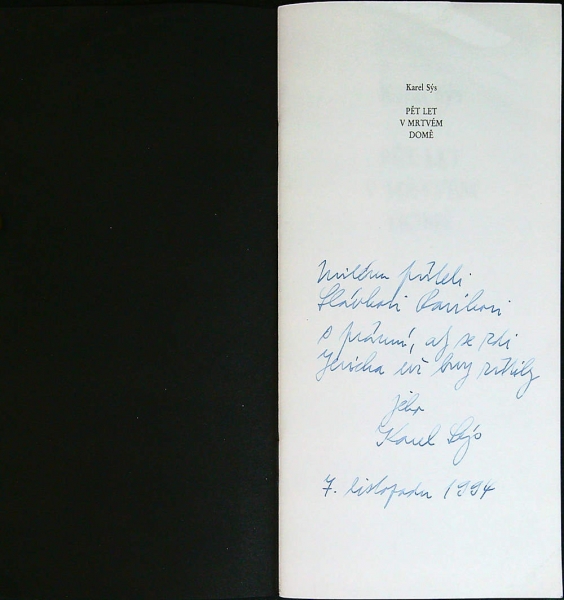 Karel Sýs
PĚT LET
V MRTVÉM
DOMĚ
milému příteli
Slávkovi
s přáním, ať se zdi
Jericha už brzy
jeho
Karel Sýs
7. listopadu 1994